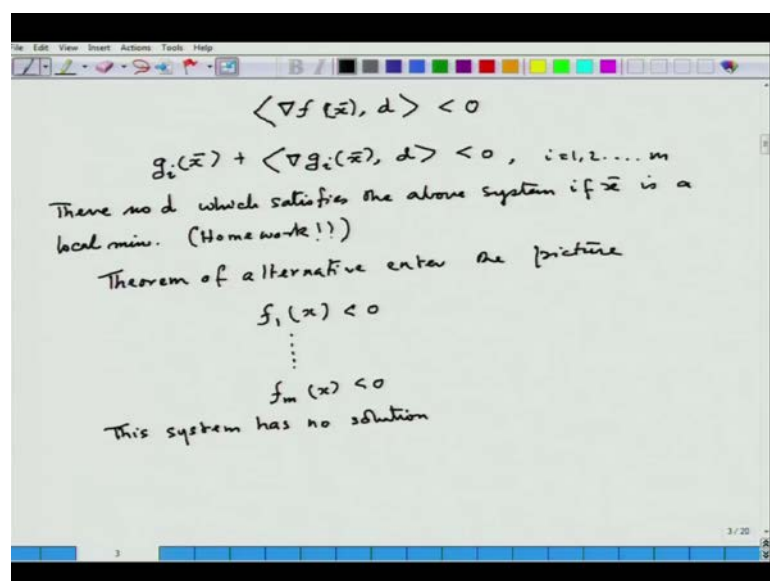 File Edit View Insert Actions Tools Help
B I
⟨∇f(x̄), d⟩ < 0
g_i(x̄) + ⟨∇g_i(x̄), d⟩ < 0, i=1,2....m
There no d which satisfies the above system if x̄ is a
local min. (Homework!!)
Theorem of alternative enter the picture
f_1(x) < 0
⋮
f_m(x) < 0
This system has no solution
3/20
3